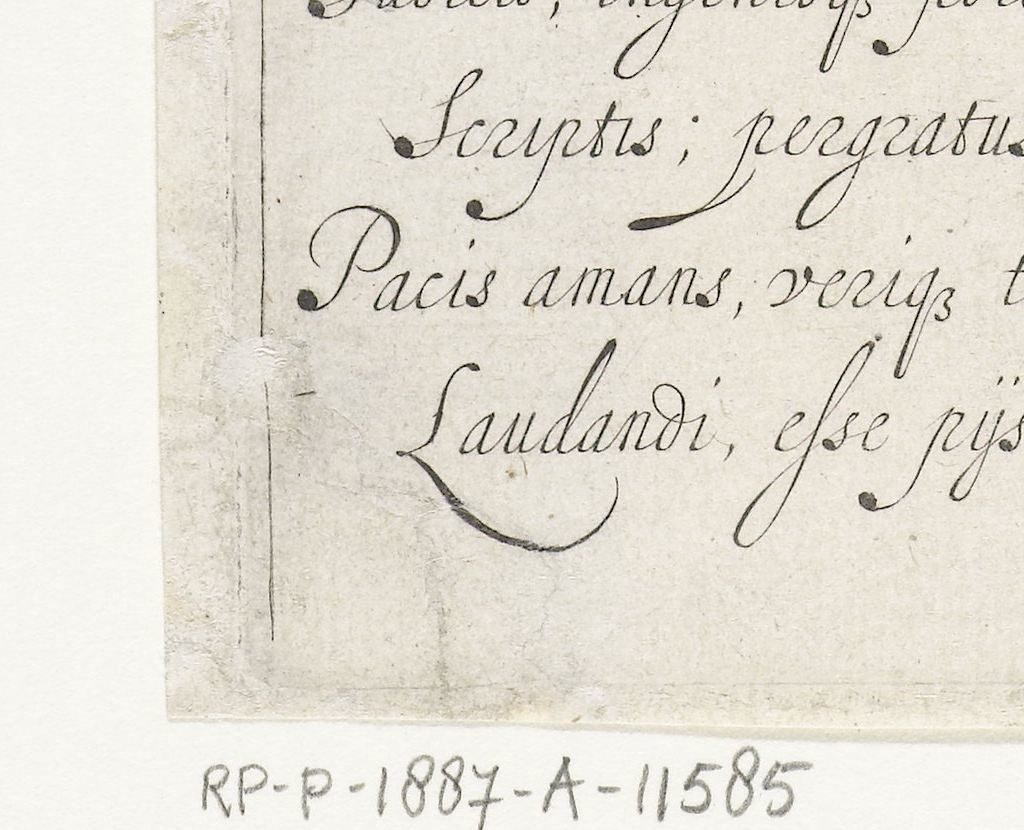 Scriptis; pergratus
Pacis amans, veriqꝫ t
Laudandi, esse pijs
RP-P-1887-A-11585